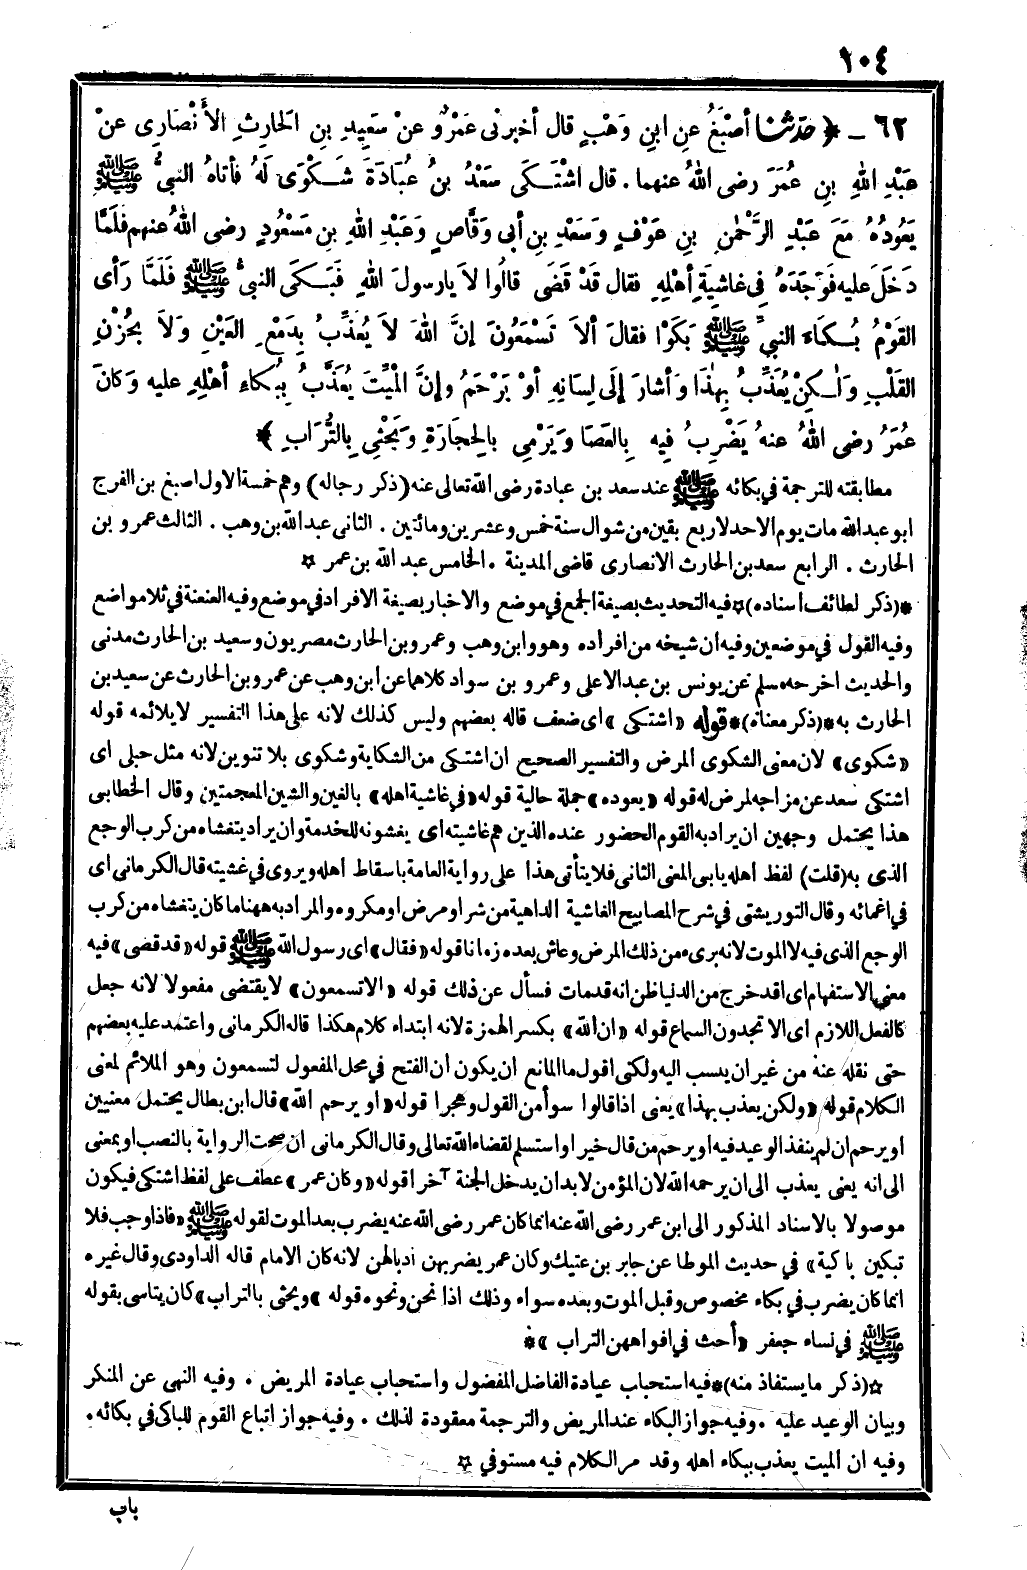 ١٠٤
٦٢ - ﴿ حَدَّثَنَا أصْبَغُ عنِ ابنِ وَهْبٍ قال أخبرنى عَمْرٌو عنْ سَعِيدِ بنِ الحَارِثِ الأَنْصَارِى عنْ
عَبْدِ اللهِ بنِ عُمَرَ رضى اللهُ عنهما . قال اشْتَكَى سَعْدُ بنُ عُبَادَةَ شَكْوَى لَهُ فأتاهُ النبىُّ ﷺ
يَعُودُهُ مَعَ عَبْدِ الرَّحْمٰنِ بنِ عَوْفٍ وَسَعْدِ بنِ أبى وَقَّاصٍ وَعَبْدِ اللهِ بنِ مَسْعُودٍ رضى اللهُ عنهم فَلَمَّا
دَخَلَ عليهِ فَوَجَدَهُ فِى غاشِيَةِ أهْلِهِ فقال قَدْ قَضَى قالُوا لاَ يارسولَ اللهِ فَبَكَى النبىُّ ﷺ فَلَمَّا رَأى
القَوْمُ بُكَاءَ النبىِّ ﷺ بَكَوْا فقالَ ألاَ تَسْمَعُونَ إنَّ اللهَ لاَ يُعَذِّبُ بِدَمْعِ العَيْنِ وَلاَ بِحُزْنِ
القَلْبِ وَلٰكِنْ يُعَذِّبُ بِهٰذَا وَأشارَ إلَى لِسَانِهِ أوْ يَرْحَمُ وإنَّ الْمَيِّتَ يُعَذَّبُ بِبُكاءِ أهْلِهِ عليه وَكانَ
عُمَرُ رضى اللهُ عنهُ يَضْرِبُ فيهِ بِالعَصَا وَيَرْمِى بالحِجَارَةِ وَيَحْثِى بِالتُّرَابِ ﴾
مطابقته للترجمة في بكائه ﷺ عند سعد بن عبادة رضى الله تعالى عنه (ذكر رجاله) وهم خمسة الاول اصبغ بن الفرج
ابو عبد الله مات يوم الاحد لاربع بقين من شوال سنة خمس وعشرين ومائتين . الثانى عبد الله بن وهب . الثالث عمرو بن
الحارث . الرابع سعد بن الحارث الانصارى قاضى المدينة . الخامس عبد الله بن عمر ☆
*(ذكر لطائف اسناده)☆ فيه التحديث بصيغة الجمع في موضع والاخبار بصيغة الافراد في موضع وفيه العنعنة في ثلاث مواضع
وفيه القول في موضعين وفيه ان شيخه من افراده وهو وابن وهب وعمرو بن الحارث مصريون وسعيد بن الحارث مدنى
والحديث اخرجه مسلم عن يونس بن عبد الاعلى وعمرو بن سواد كلاهما عن ابن وهب عن عمرو بن الحارث عن سعيد بن
الحارث به *(ذكر معناه)* قوله «اشتكى» اى ضعف قاله بعضهم وليس كذلك لانه على هذا التفسير لا يلائمه قوله
«شكوى» لان معنى الشكوى المرض والتفسير الصحيح ان اشتكى من الشكاية وشكوى بلا تنوين لانه مثل حبلى اى
اشتكى سعد عن مزاجه لمرض له قوله «يعوده» جملة حالية قوله «في غاشية اهله» بالغين والشين المعجمتين وقال الخطابى
هذا يحتمل وجهين ان يراد به القوم الحضور عنده الذين هم غاشيته اى يغشونه للخدمة وان يراد يتغشاه من كرب الوجع
الذى به (قلت) لفظ اهله يابى المعنى الثانى فلا يتأتى هذا على رواية العامة باسقاط اهله ويروى في غشيته قال الكرمانى اى
في اغمائه وقال التوربشتى في شرح المصابيح الغاشية الداهية من شر او مرض او مكروه والمراد به ههنا ما كان يتغشاه من كرب
الوجع الذى فيه لا الموت لانه برىء من ذلك المرض وعاش بعده زمانا قوله «فقال» اى رسول الله ﷺ قوله «قد قضى» فيه
معنى الاستفهام اى اقد خرج من الدنيا ظن انه قد مات فسأل عن ذلك قوله «الا تسمعون» لا يقتضى مفعولا لانه جعل
كالفعل اللازم اى الا تجدون السماع قوله «ان الله» بكسر الهمزة لانه ابتداء كلام هكذا قاله الكرمانى واعتمد عليه بعضهم
حتى نقله عنه من غير ان ينسب اليه ولكنى اقول ما المانع ان يكون ان الفتح في محل المفعول لتسمعون وهو الملائم لمعنى
الكلام قوله «ولكن يعذب بهذا» يعنى اذا قالوا سوأ من القول وهجرا قوله «او يرحم الله» قال ابن بطال يحتمل معنيين
او يرحم ان لم ينفذ الوعيد فيه او يرحم من قال خيرا واستسلم لقضاء الله تعالى وقال الكرمانى ان صحت الرواية بالنصب او بمعنى
الى انه يعنى يعذب الى ان يرحمه الله لان المؤمن لا بد ان يدخل الجنة آخرا قوله «وكان عمر» عطف على لفظ اشتكى فيكون
موصولا بالاسناد المذكور الى ابن عمر رضى الله عنه انما كان عمر رضى الله عنه يضرب بعد الموت لقوله ﷺ «فاذا وجب فلا
تبكين باكية» في حديث الموطا عن جابر بن عتيك وكان عمر يضربهن ادبا لهن لانه كان الامام قاله الداودى وقال غيره
انما كان يضرب في بكاء مخصوص وقبل الموت وبعده سواء وذلك اذا نحن ونحوه قوله «ويحثى بالتراب» كان يتاسى بقوله
ﷺ في نساء جعفر «أحث في افواههن التراب» *
☆(ذكر ما يستفاذ منه)* فيه استحباب عيادة الفاضل المفضول واستحباب عيادة المريض . وفيه النهى عن المنكر
وبيان الوعيد عليه . وفيه جواز البكاء عند المريض والترجمة معقودة لذلك . وفيه جواز اتباع القوم للباكى في بكائه .
وفيه ان الميت يعذب ببكاء اهله وقد مر الكلام فيه مستوفي ☆
باب